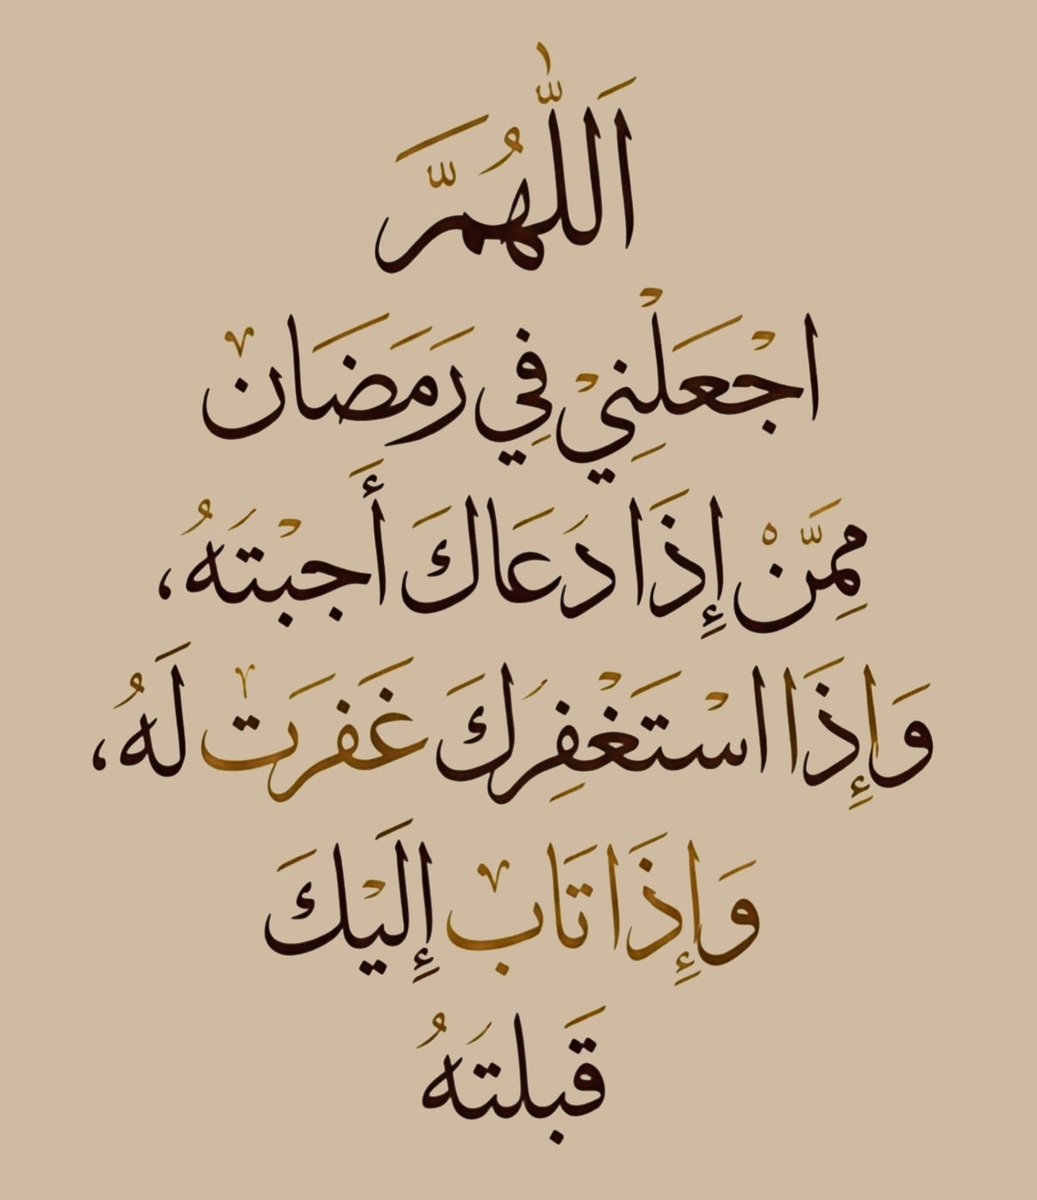 اَللّٰهُمَّ
اجْعَلْنِيْ فِي رَمَضَان
مِمَّنْ إِذَا دَعَاكَ أَجبْتَهُ،
وَإِذَا اسْتَغْفِرُكَ غَفَرَت لَهُ،
وَإِذَا تَاب إِلَيْكَ
قَبلتَهُ